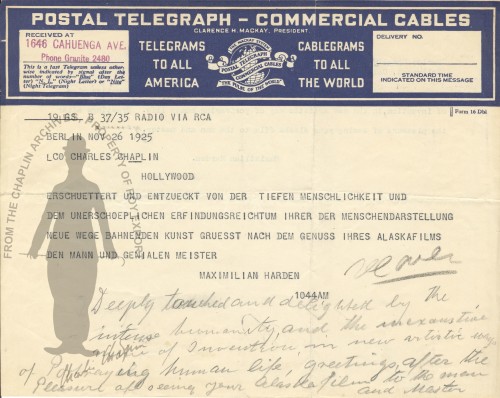 POSTAL TELEGRAPH - COMMERCIAL CABLES
CLARENCE H. MACKAY, PRESIDENT.
RECEIVED AT
1646 CAHUENGA AVE.
Phone Granite 2480
This is a fast Telegram unless otherwise indicated by signal after the number of words—"Blue" (Day Letter) "N.L." (Night Letter) or "Nite" (Night Telegram)
TELEGRAMS
TO ALL
AMERICA
THE MACKAY SYSTEM
POSTAL TELEGRAPH
COMMERCIAL CABLES
CABLEGRAMS
TO ALL
THE WORLD
DELIVERY NO.
STANDARD TIME
INDICATED ON THIS MESSAGE
Form 16 Dhi
B 37/35 RADIO VIA RCA
BERLIN NOV 26 1925
LCO CHARLES CHAPLIN
HOLLYWOOD
ERSCHUETTERT UND ENTZUECKT VON DER TIEFEN MENSCHLICHKEIT UND
DEM UNERSCHOEPLICHEN ERFINDUNGSREICHTUM IHRER DER MENSCHENDARSTELLUNG
NEUE WEGE BAHNENDEN KUNST GRUESST NACH DEM GENUSS IHRES ALASKAFILMS
DEN MANN UND GENIALEN MEISTER
MAXIMILIAN HARDEN
1044AM
Deeply touched and delighted by the
intense humanity and the inexaustive
of Invention in new artistic way
of Portraying human life, greetings, after the
Pleasure of seeing your Alaska film to the man
and Master
FROM THE CHAPLIN ARCHIVES PROPERTY OF ROY EXPORT